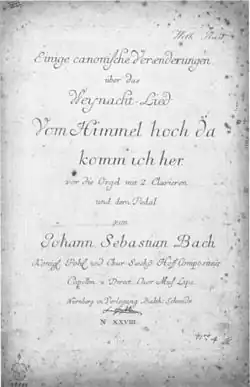 Einige canonische Veraenderungen,
über das
Weynacht-Lied
Vom Himmel hoch da
komm ich her.
vor die Orgel mit 2. Clavieren
und dem Pedal
von
Johann Sebastian Bach
Königl. Pohl. und Chur Saechß. Hoff Compositeur
Capellm. u. Direct. Chor. Mus. Lips.
Nürnberg in Verlegung Balth. Schmids
N XXVIII.